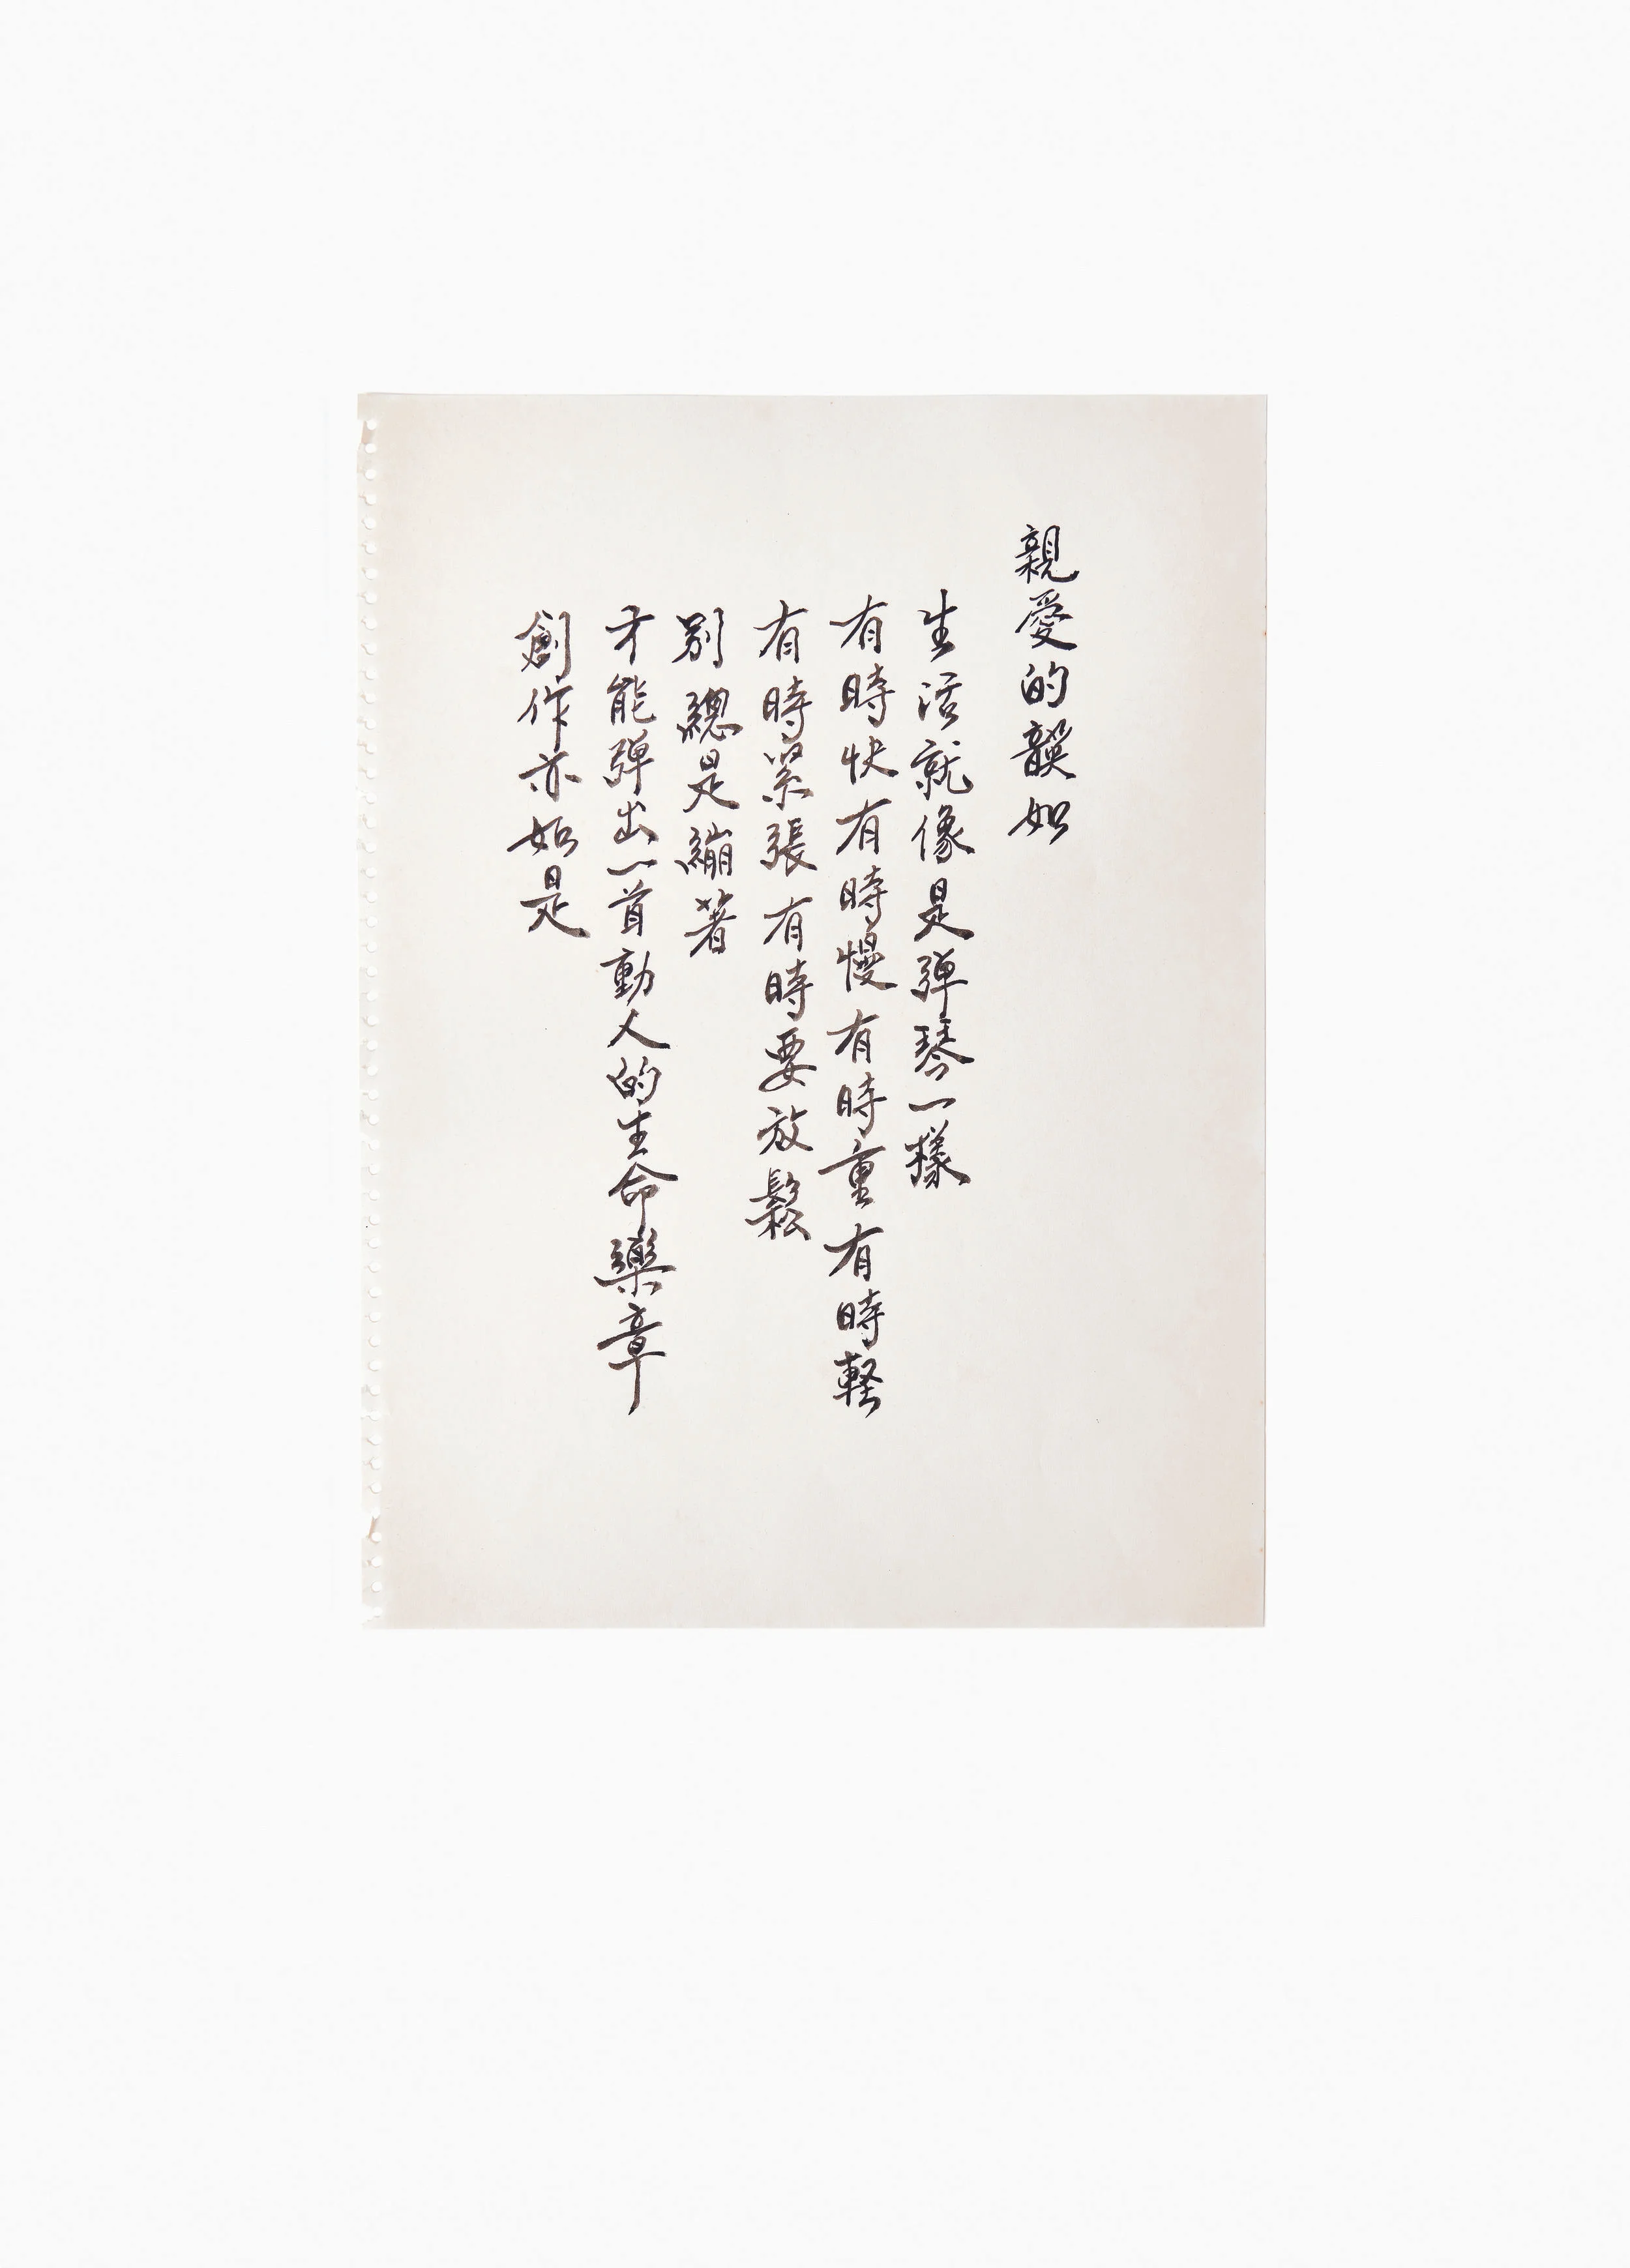 親愛的韻如
生活就像是弹琴一樣
有時快有時慢有時重有時軽
有時緊張有時要放鬆
别總是繃著
才能弹出一首動人的生命樂章
創作亦如是